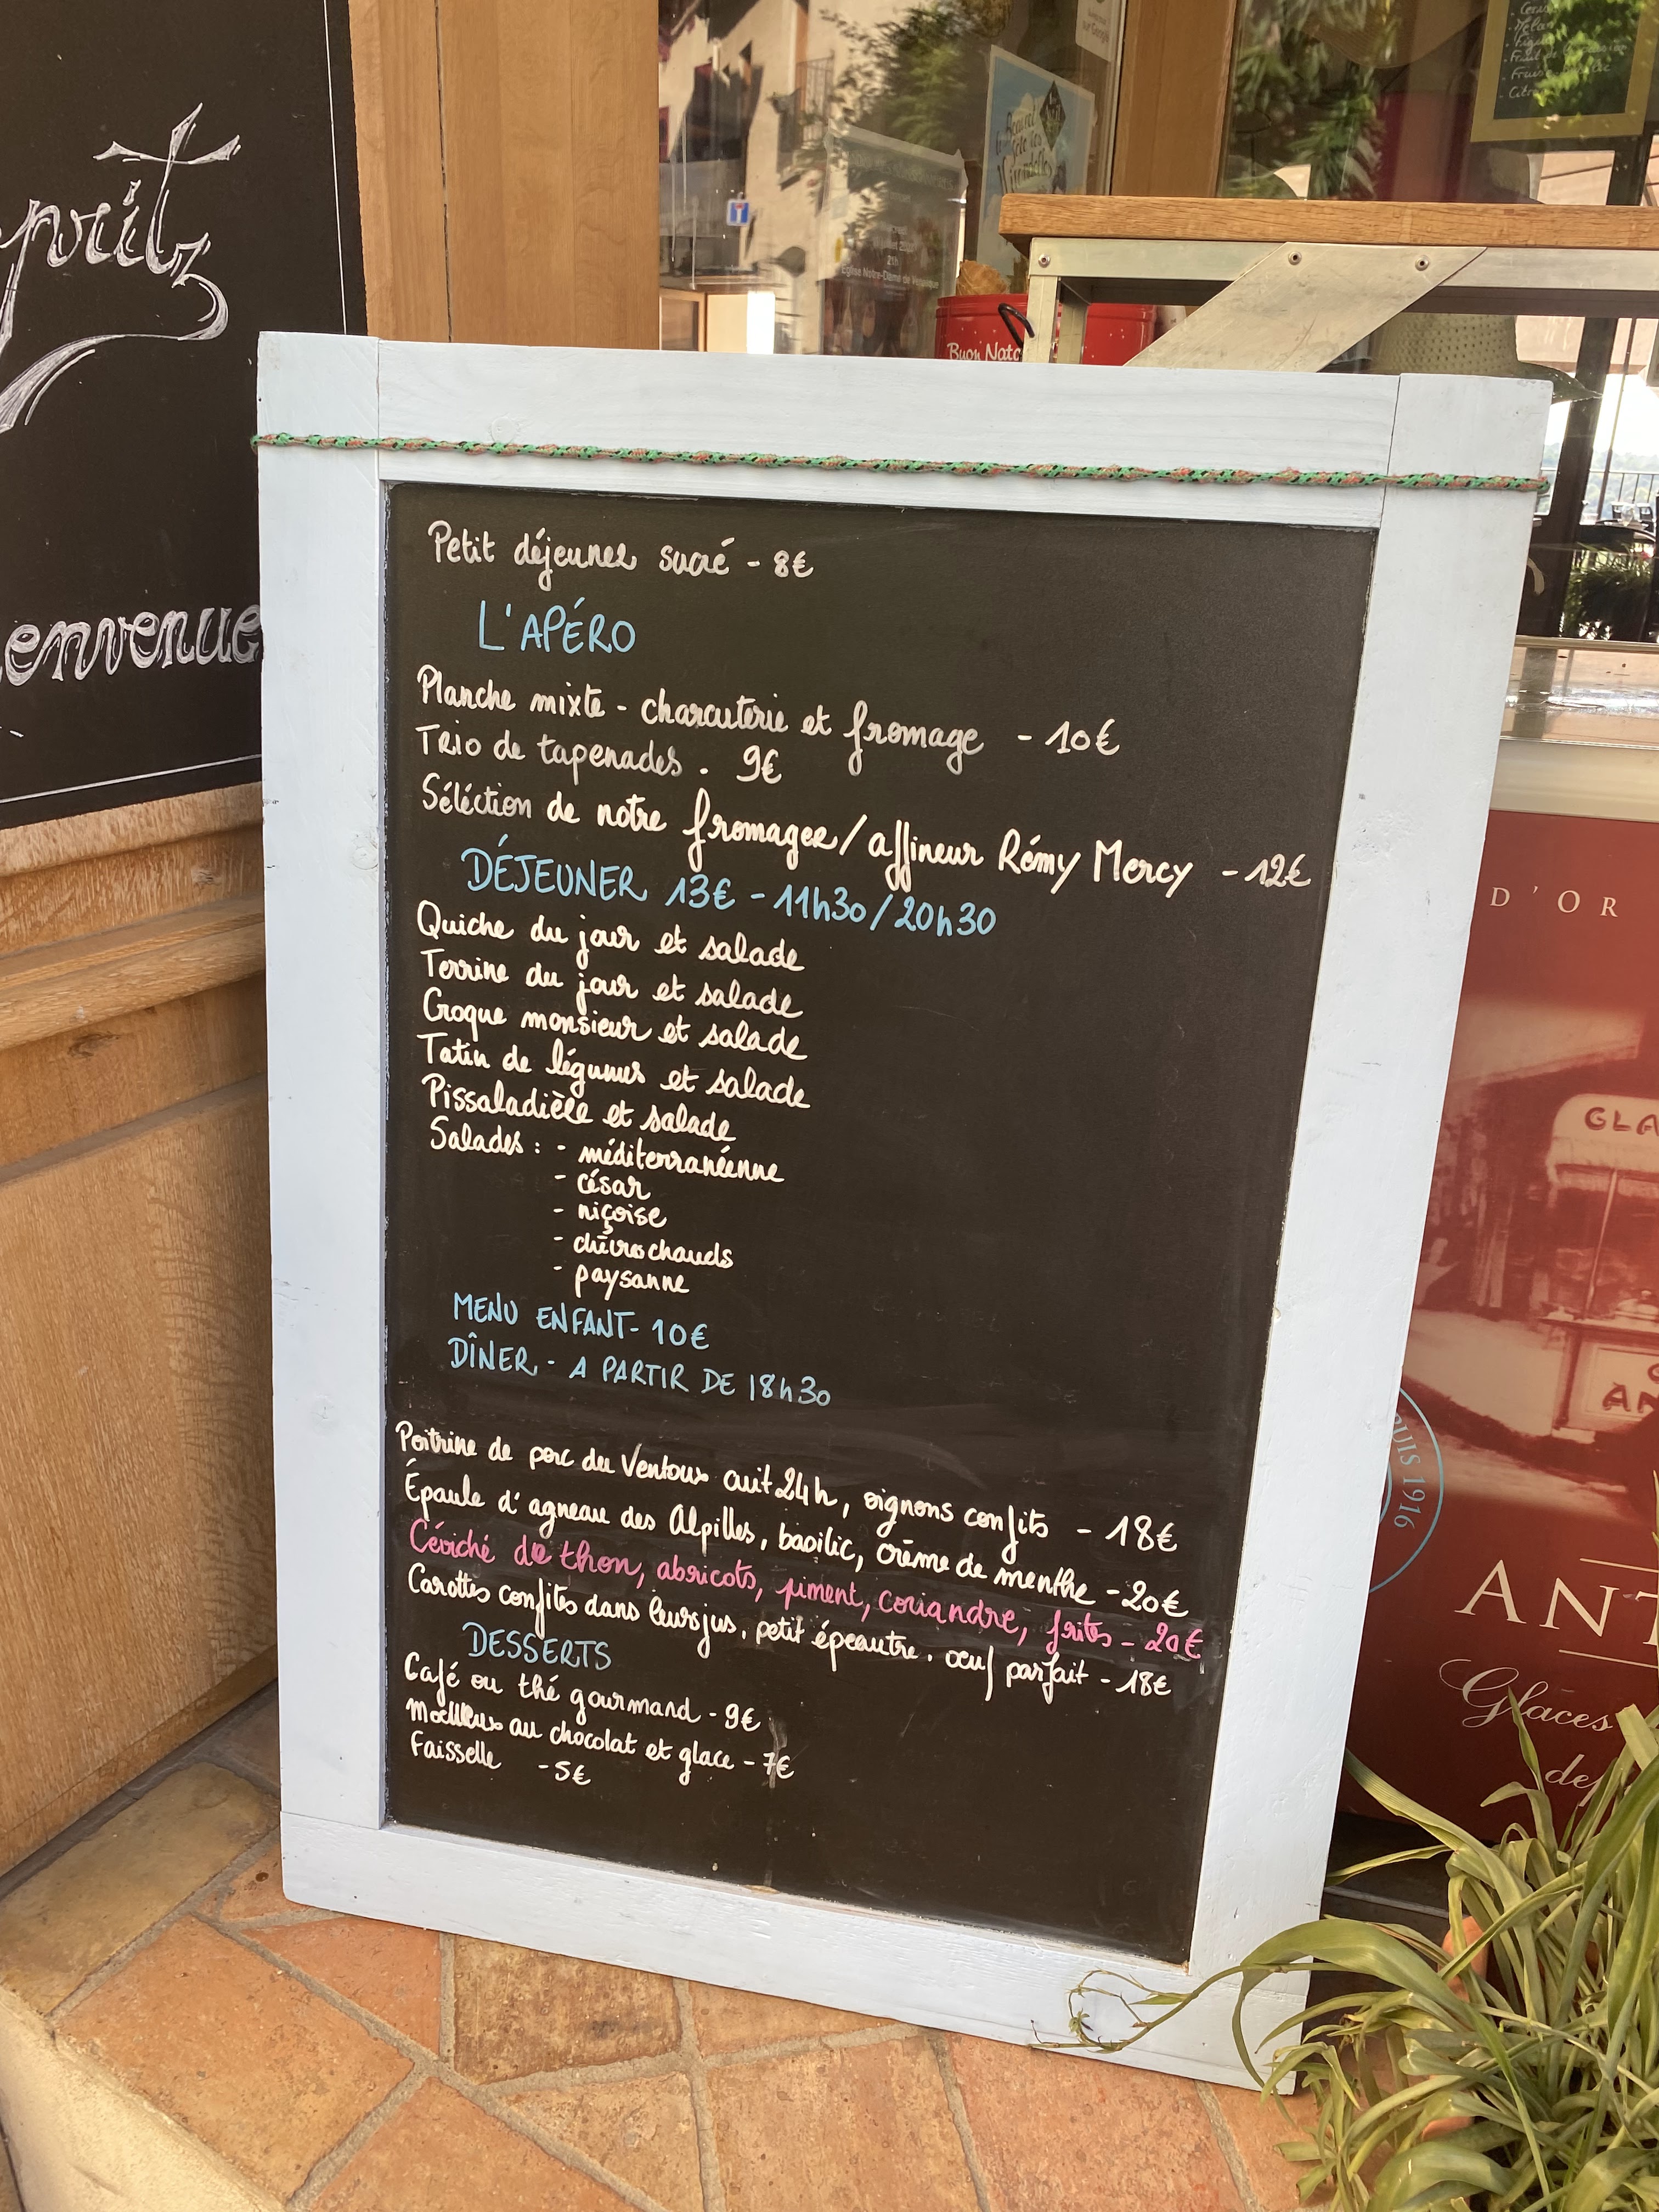 prit
envenue
Petit déjeuner sucré - 8€
L'APÉRO
Planche mixte - charcuterie et fromage - 10€
Trio de tapenades . 9€
Séléction de notre fromager/affineur Rémy Mercy - 12€
DÉJEUNER 13€ - 11h30/20h30
Quiche du jour et salade
Terrine du jour et salade
Croque monsieur et salade
Tatin de légumes et salade
Pissaladière et salade
Salades : - méditerranéenne
- césar
- niçoise
- chèvres chauds
- paysanne
MENU ENFANT - 10€
DÎNER - A PARTIR DE 18h30
Poitrine de porc du Ventoux cuit 24h, oignons confits - 18€
Épaule d'agneau des Alpilles, basilic, crème de menthe - 20€
Céviché de thon, abricots, piment, coriandre, frites - 20€
Carottes confites dans leurs jus, petit épeautre, oeuf parfait - 18€
DESSERTS
Café ou thé gourmand - 9€
Moelleux au chocolat et glace - 7€
Faisselle - 5€
Buon Nata
21h
Eglise Notre-Dame de
D'OR
GLA
AN
PUIS 1916
ANT
Glaces